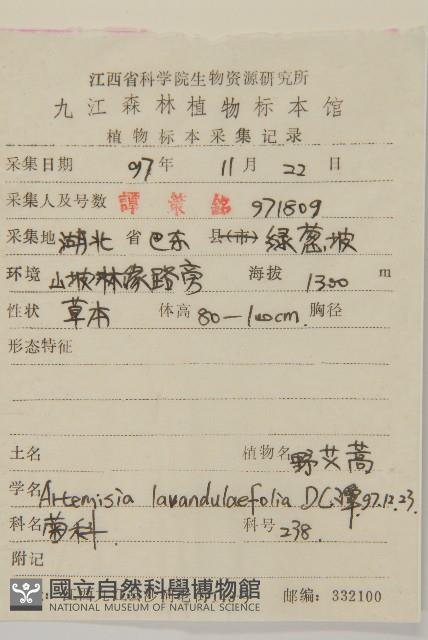 江西省科学院生物资源研究所
九江森林植物标本馆
植物标本采集记录
采集日期 97年 11月 22日
采集人及号数 譚策銘 971809
采集地 湖北 省 巴东 县(市) 绿葱坡
环境 山坡林缘路旁 海拔 1300 m
性状 草本 体高 80—100cm. 胸径
形态特征
土名 植物名 野艾蒿
学名 Artemisia lavandulaefolia DC. 譚 97.12.23.
科名 菊科. 科号 238.
附记
國立自然科學博物館
NATIONAL MUSEUM OF NATURAL SCIENCE
邮编: 332100